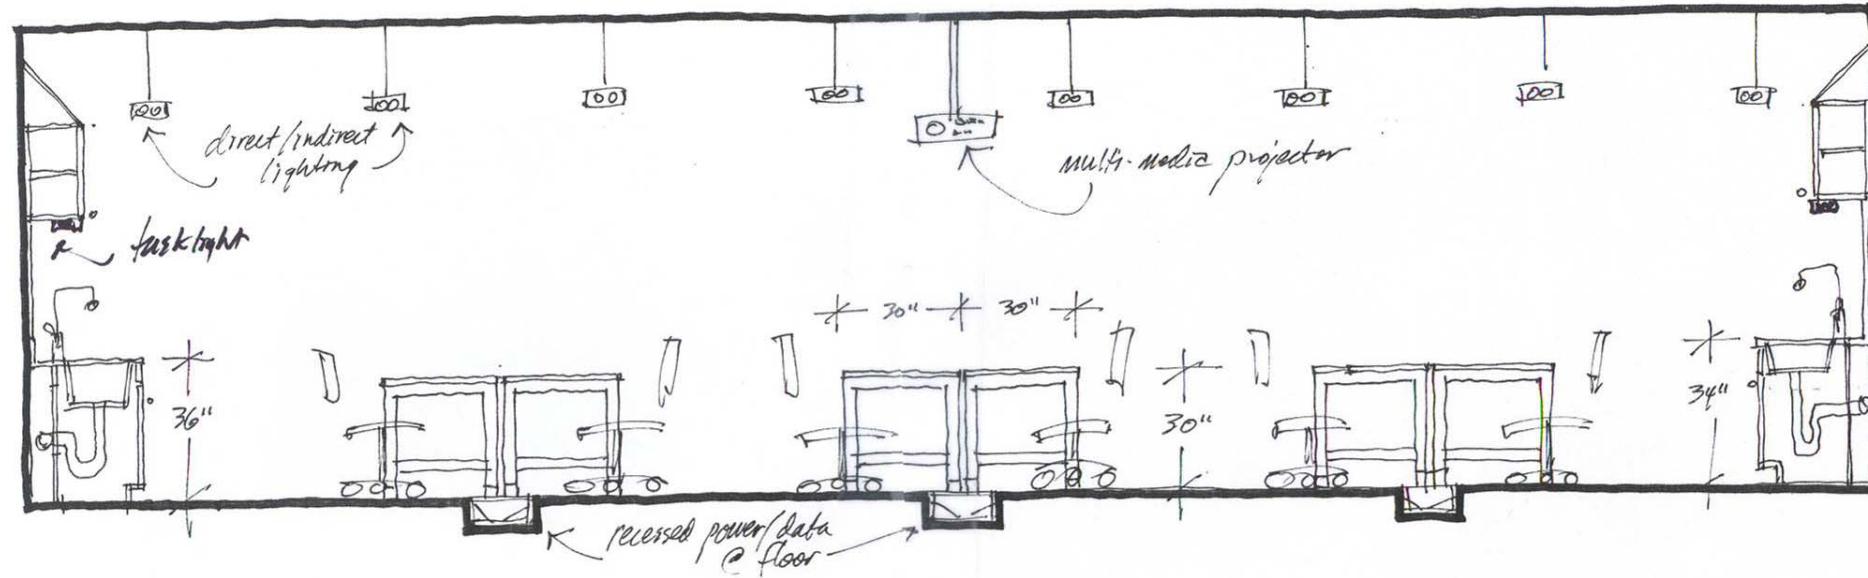 direct/indirect
lighting
multi-media projector
tasklight
30" 30"
36"
30"
34"
recessed power/data
@ floor